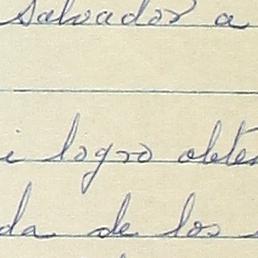 Salvador a
i logro obten
da de los